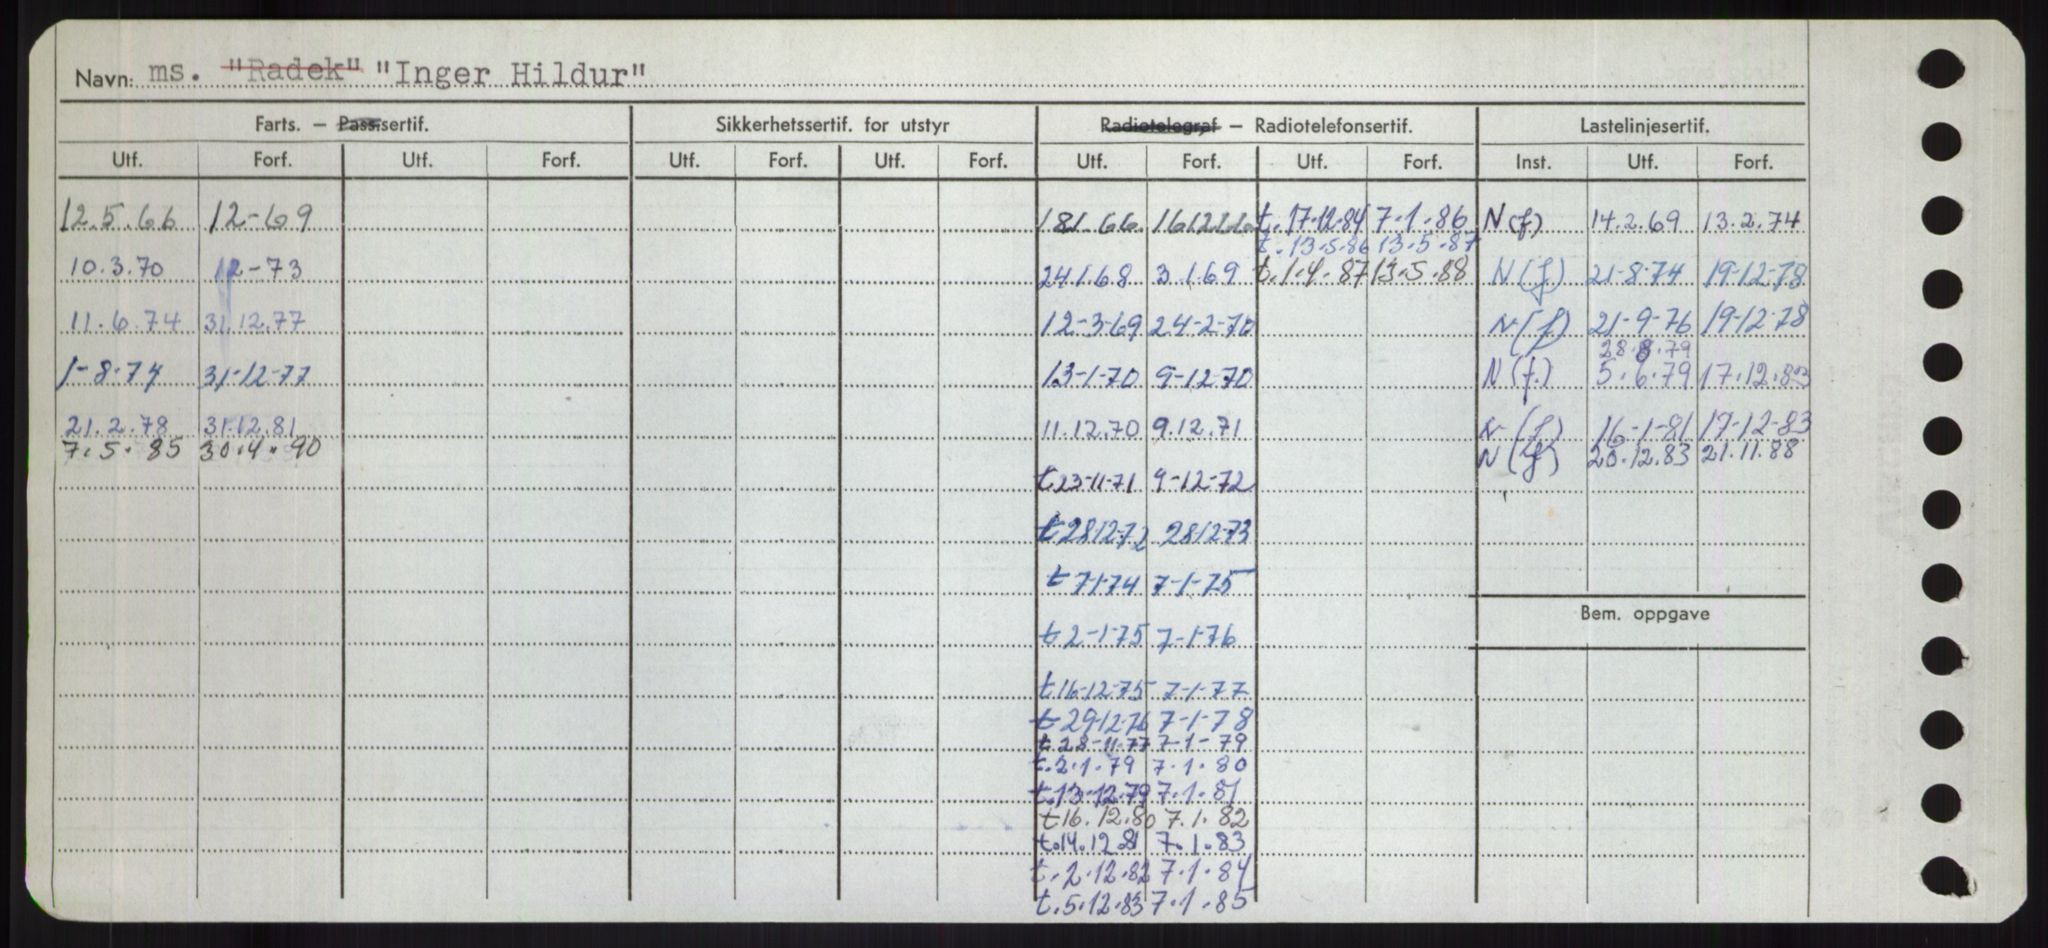 Navn: ms. "Radek" "Inger Hildur"
Farts. — Passsertif. Sikkerhetssertif. for utstyr Radiotelegraf — Radiotelefonsertif. Lastelinjesertif.
Utf. Forf. Utf. Forf. Utf. Forf. Utf. Forf. Utf. Forf. Utf. Forf. Inst. Utf. Forf.
12.5.66 12-69 181.66. t. 17.12.84 7.1.86 N(f) 14.2.69 13.2.74
t. 13.5.86 13.5.87
10.3.70 12-73 24.1.68 3.1.69 t. 1.4.87 13.5.88 N(f.) 21-8-74 19-12-78
11.6.74 31.12.77 12-3-69 24-2-70 N(f) 21-9-76 19-12-78
28.8.79
1-8-74 31-12-77 13-1-70 9-12-70 N(f.) 5.6.79 17.12.83
21.2.78 31.12.81 11.12.70 9.12.71 N(f) 16-1-81 17-12-83
7.5.85 30.4.90 N(f) 20.12.83 21.11.88
t 23-11-71 9-12-72
t 2812-72 2812-73
t 7-1-74 7-1-75
Bem. oppgave
t 2-1-75 7-1-76
t 16-12-75 7-1-77
t 29-12-76 7-1-78
t. 28-11-77 7-1-79
t. 2.1.79 7.1.80
t. 13.12.79 7.1.81
t 16.12.80 7.1.82
t. 14.12.81 7.1.83
t. 2.12.82 7.1.84
t. 5.12.83 7.1.85